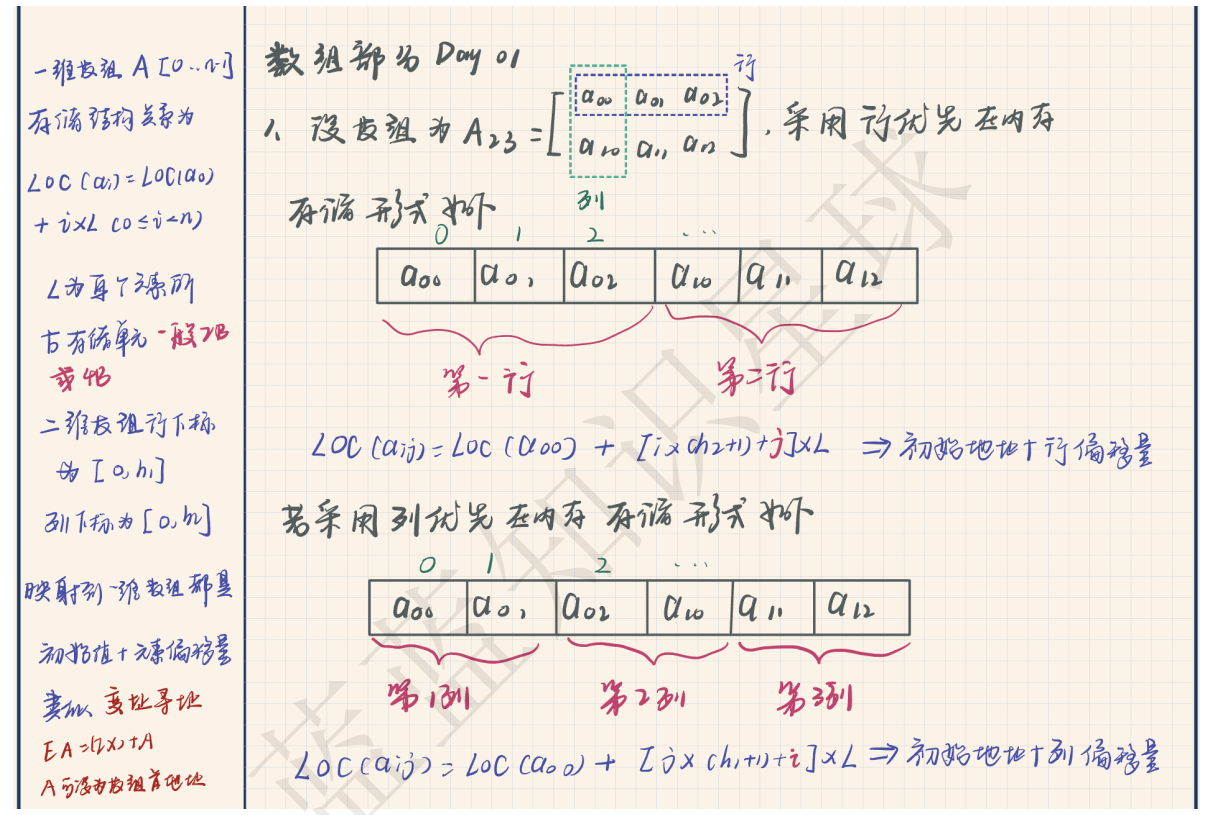 一维数组 A [0..n-1]
存储结构关系为
LOC(ai) = LOC(a0)
+ i×L (0≤i<n)
L为每个元素所
占存储单元 一般2B
或4B
二维数组行下标
为 [0,h1]
列下标为 [0,h2]
映射到一维数组都是
初始值+元素偏移量
类似 变址寻址
EA=(IX)+A
A可设为数组首地址
数组部分 Day 01
行
1、设数组为 A23 = [a00 a01 a02
a10 a11 a12], 采用行优先在内存
列
存储形式如下
0 1 2 ...
a00 a01 a02 a10 a11 a12
第一行 第二行
LOC(aij) = LOC(a00) + [i×(h2+1)+j]×L ⇒ 初始地址+行偏移量
若采用列优先在内存存储形式如下
0 1 2 ...
a00 a01 a02 a10 a11 a12
第1列 第2列 第3列
LOC(aij) = LOC(a00) + [j×(h1+1)+i]×L ⇒ 初始地址+列偏移量
蓝蓝知识星球